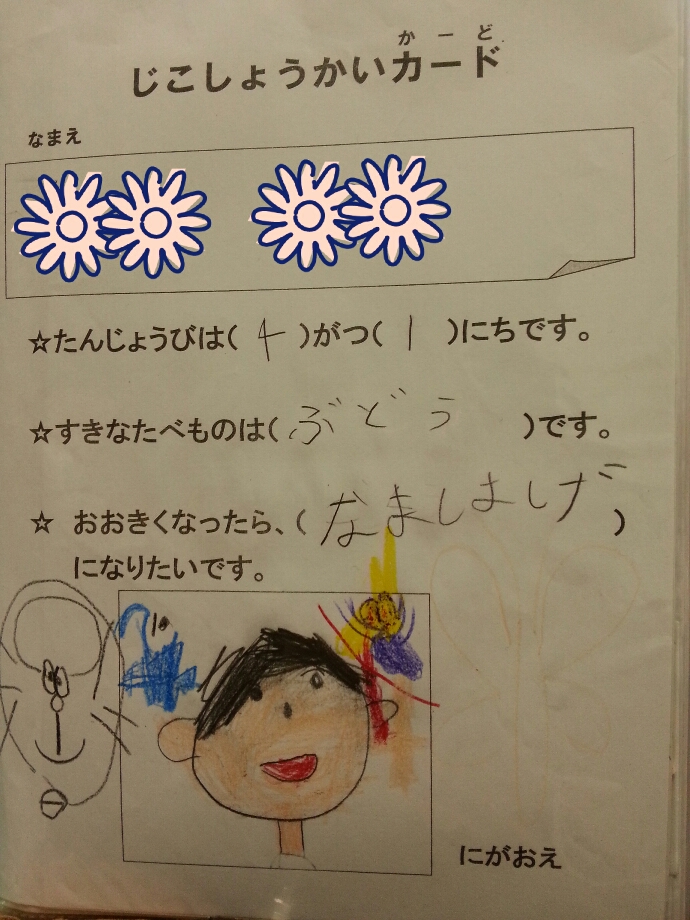 か ー ど
じこしょうかいカード
なまえ
☆たんじょうびは( 4 )がつ( 1 )にちです。
☆すきなたべものは( ぶどう )です。
☆ おおきくなったら、( なましましげ )
になりたいです。
にがおえ